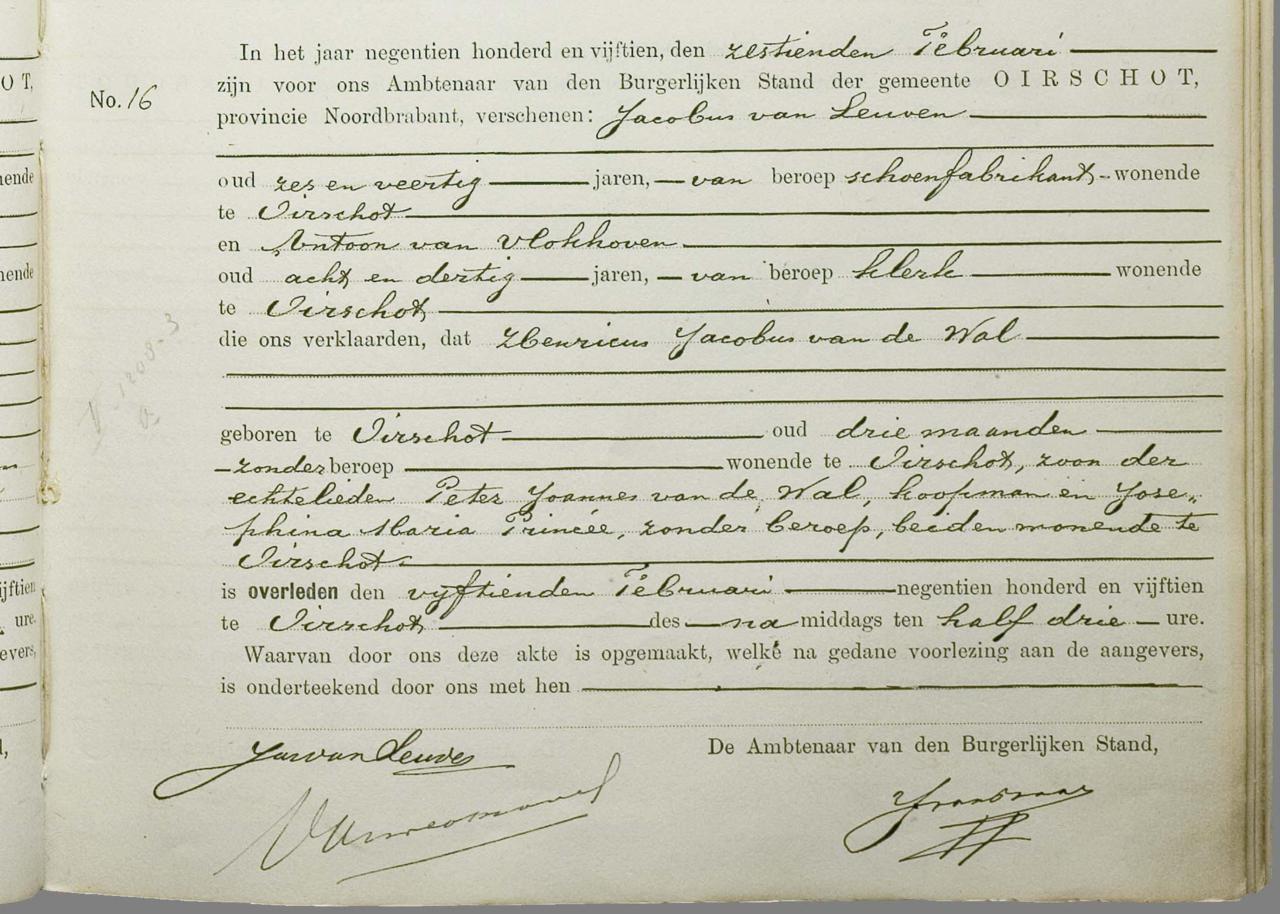 In het jaar negentien honderd en vijftien, den zestienden Februari
zijn voor ons Ambtenaar van den Burgerlijken Stand der gemeente OIRSCHOT,
No. 16
provincie Noordbrabant, verschenen: Jacobus van Leuven
oud zes en veertig jaren, van beroep schoenfabrikant wonende
te Oirschot
en Antoon van Vlokhoven
oud acht en dertig jaren, van beroep klerk wonende
te Oirschot
die ons verklaarden, dat Henricus Jacobus van de Wal
geboren te Oirschot oud drie maanden
zonder beroep wonende te Oirschot, zoon der
echtelieden Peter Joannes van de Wal, koopman en Jose-
phina Maria Princée, zonder beroep, beiden wonende te
Oirschot
is overleden den vijftienden Februari negentien honderd en vijftien
te Oirschot des na middags ten half drie ure.
Waarvan door ons deze akte is opgemaakt, welke na gedane voorlezing aan de aangevers,
is onderteekend door ons met hen
De Ambtenaar van den Burgerlijken Stand,
van Leuven